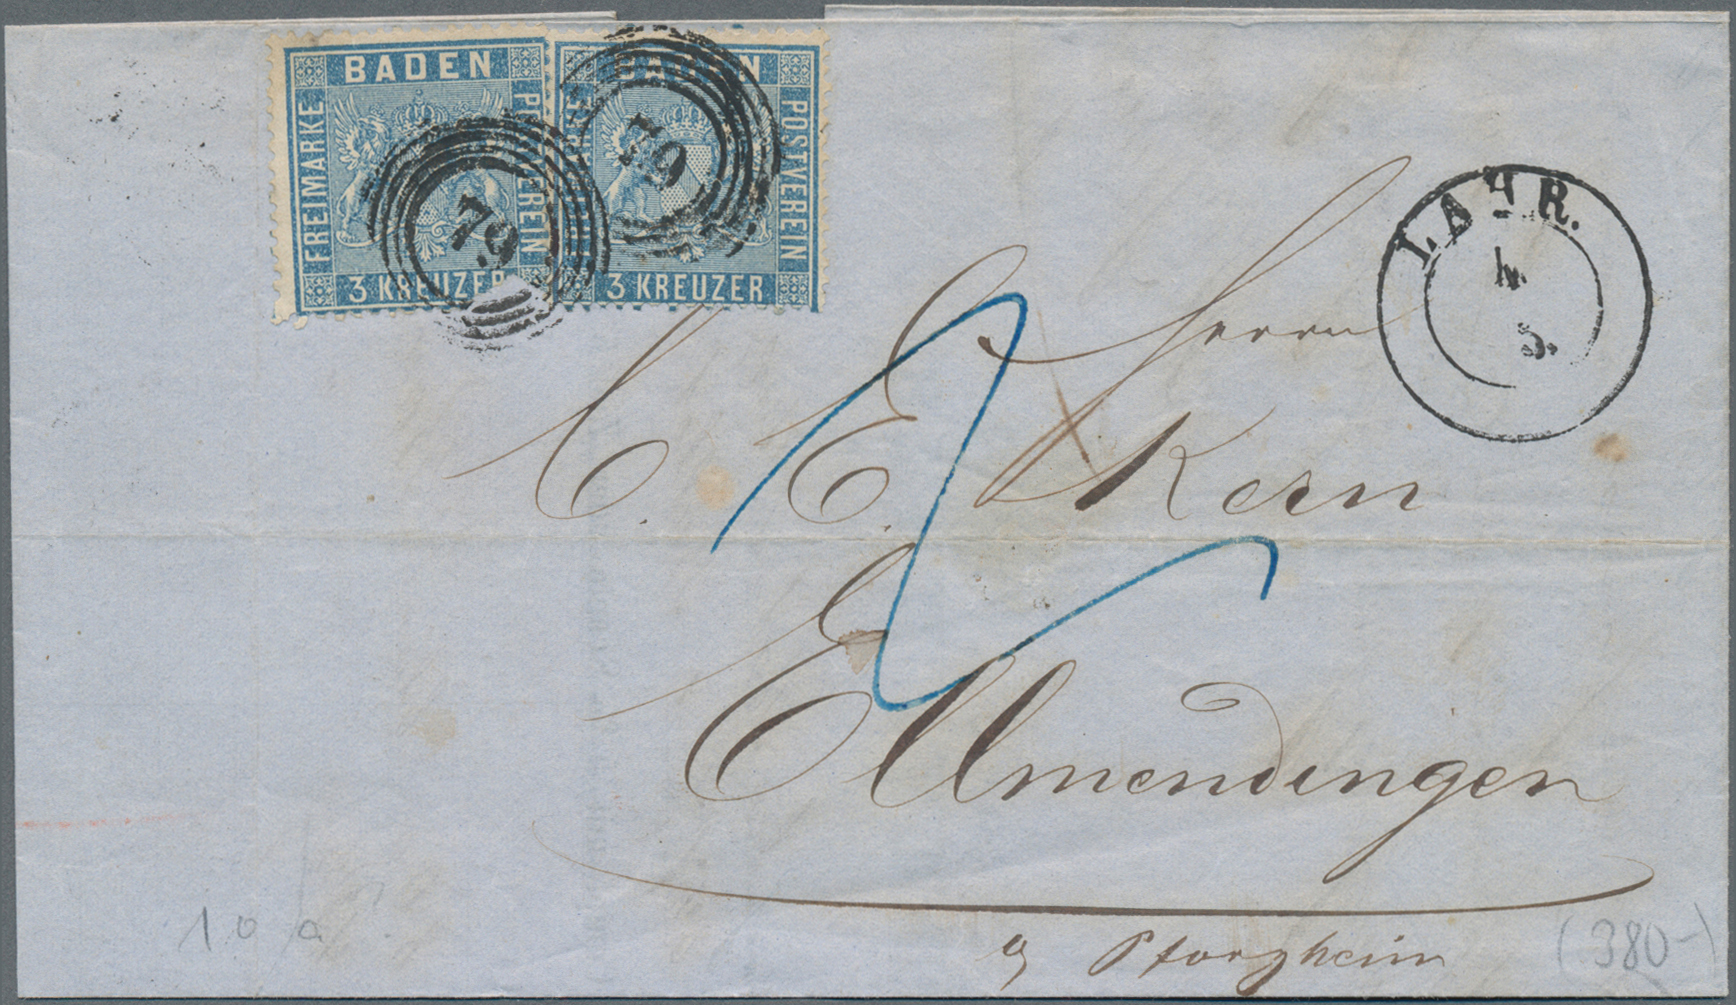 BADEN
FREIMARKE
POSTVEREIN
3 KREUZER
BADEN
FREIMARKE
POSTVEREIN
3 KREUZER
79
79
LAHR.
4.
5.
Herrn
C. E. Kern
2
Ellmendingen
Pforzheim
10 a
(380-)